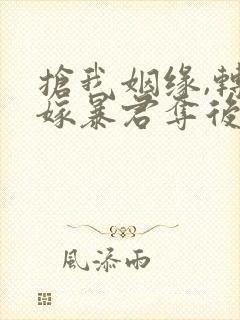 搶我姻缘,轉
嫁暴君奪後
風添雨